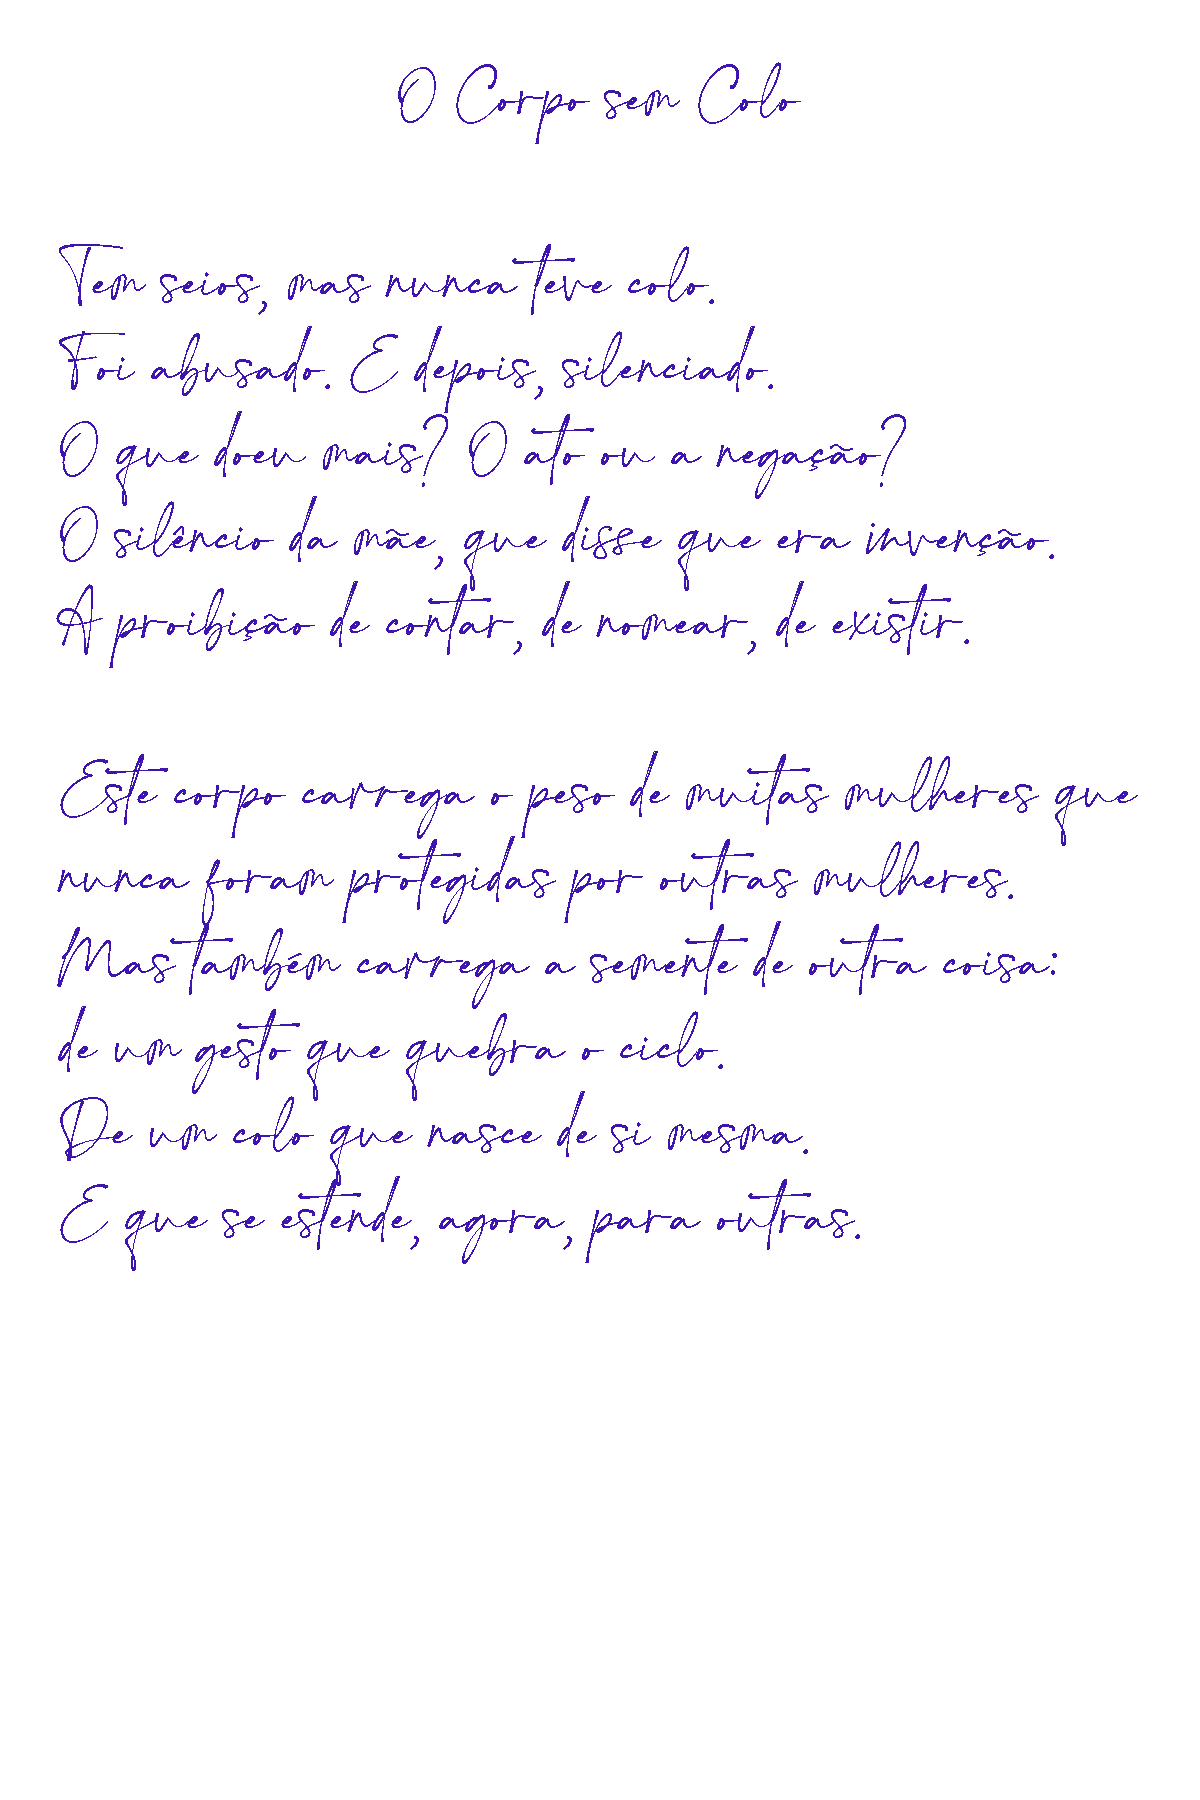 O Corpo sem Colo
Tem seios, mas nunca teve colo.
Foi abusado. E depois, silenciado.
O que doeu mais? O ato ou a negação?
O silêncio da mãe, que disse que era invenção.
A proibição de contar, de nomear, de existir.
Este corpo carrega o peso de muitas mulheres que
nunca foram protegidas por outras mulheres.
Mas também carrega a semente de outra coisa:
de um gesto que quebra o ciclo.
De um colo que nasce de si mesma.
E que se estende, agora, para outras.